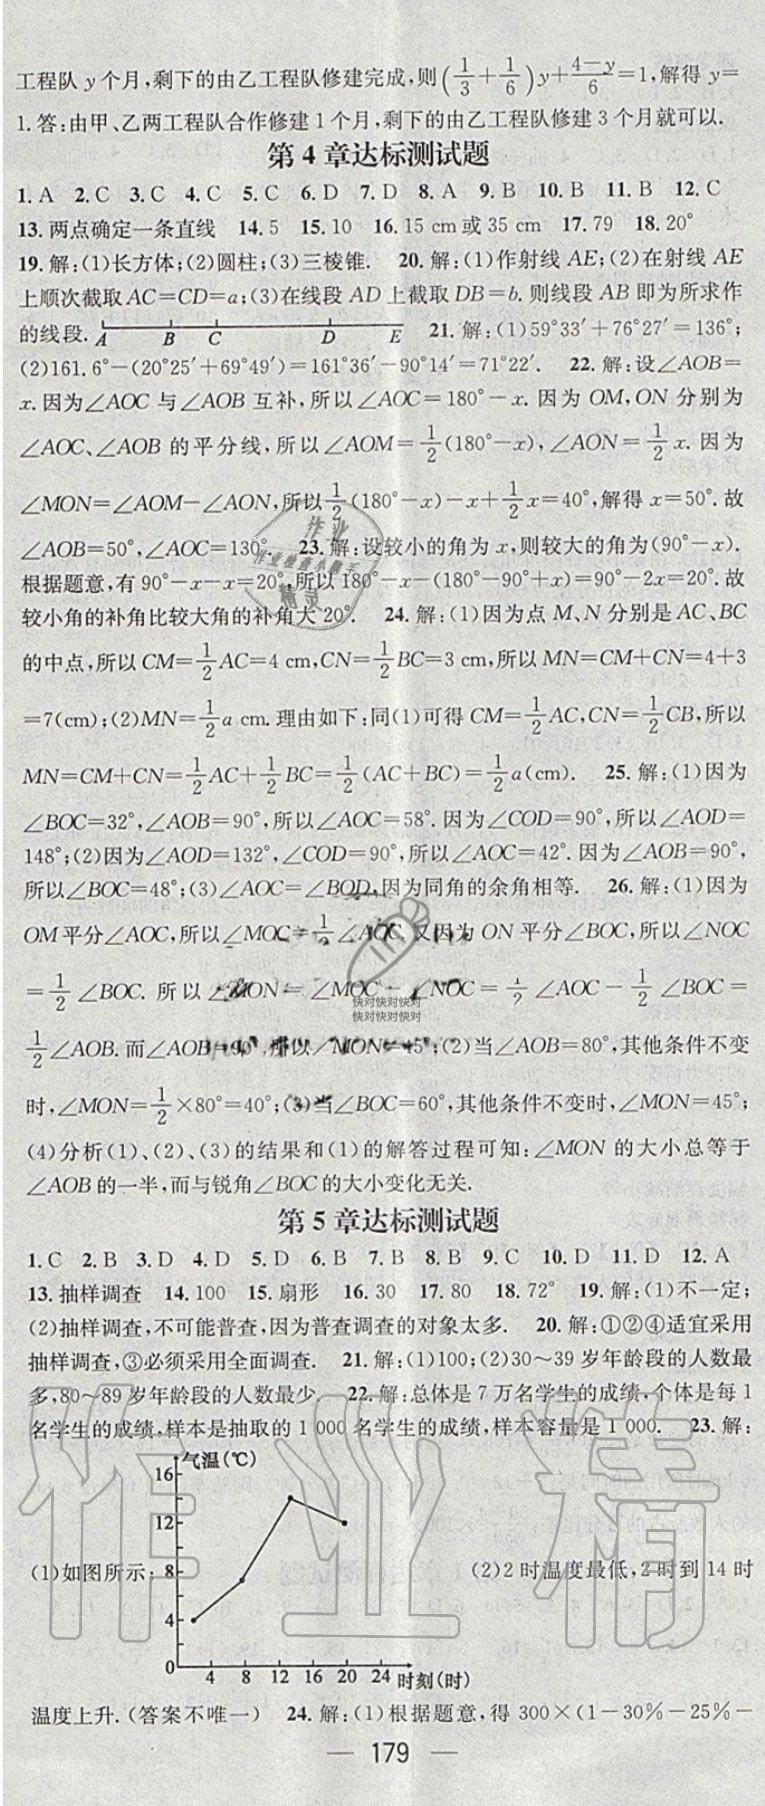 工程队 y 个月,剩下的由乙工程队修建完成,则(1/3+1/6)y+(4-y)/6=1,解得 y=
1.答:由甲、乙两工程队合作修建 1 个月,剩下的由乙工程队修建 3 个月就可以.
第 4 章达标测试题
1. A 2. C 3. C 4. C 5. C 6. D 7. D 8. A 9. B 10. B 11. B 12. C
13. 两点确定一条直线 14. 5 15. 10 16. 15 cm或 35 cm 17. 79 18. 20°
19. 解:(1)长方体;(2)圆柱;(3)三棱锥. 20. 解:(1)作射线 AE;(2)在射线 AE
上顺次截取 AC=CD=a;(3)在线段 AD 上截取 DB=b. 则线段 AB 即为所求作
的线段. A B C D E 21. 解:(1)59°33′+76°27′=136°;
(2)161.6°-(20°25′+69°49′)=161°36′-90°14′=71°22′. 22. 解:设∠AOB=
x. 因为∠AOC 与∠AOB 互补,所以∠AOC=180°-x. 因为 OM,ON 分别为
∠AOC、∠AOB 的平分线,所以∠AOM=1/2(180°-x),∠AON=1/2 x. 因为
∠MON=∠AOM-∠AON,所以1/2(180°-x)-x+1/2x=40°,解得 x=50°. 故
∠AOB=50°,∠AOC=130°. 23. 解:设较小的角为 x,则较大的角为(90°-x).
根据题意,有 90°-x-x=20°,所以 180°-x-(180°-90°+x)=90°-2x=20°. 故
较小角的补角比较大角的补角大 20°. 24. 解:(1)因为点 M、N 分别是 AC、BC
的中点,所以 CM=1/2AC=4 cm,CN=1/2BC=3 cm,所以 MN=CM+CN=4+3
=7(cm);(2)MN=1/2a cm. 理由如下:同(1)可得 CM=1/2AC,CN=1/2CB,所以
MN=CM+CN=1/2AC+1/2BC=1/2(AC+BC)=1/2a(cm). 25. 解:(1)因为
∠BOC=32°,∠AOB=90°,所以∠AOC=58°. 因为∠COD=90°,所以∠AOD=
148°;(2)因为∠AOD=132°,∠COD=90°,所以∠AOC=42°. 因为∠AOB=90°,
所以∠BOC=48°;(3)∠AOC=∠BOD,因为同角的余角相等. 26. 解:(1)因为
OM平分∠AOC,所以∠MOC=1/2∠AOC. 又因为 ON 平分∠BOC,所以∠NOC
=1/2∠BOC. 所以∠MON=∠MOC-∠NOC=1/2∠AOC-1/2∠BOC=
1/2∠AOB. 而∠AOB=90°,所以∠MON=45°;(2)当∠AOB=80°,其他条件不变
时,∠MON=1/2×80°=40°;(3)当∠BOC=60°,其他条件不变时,∠MON=45°;
(4)分析(1)、(2)、(3)的结果和(1)的解答过程可知:∠MON 的大小总等于
∠AOB 的一半,而与锐角∠BOC 的大小变化无关.
第 5 章达标测试题
1. C 2. B 3. D 4. D 5. D 6. B 7. B 8. B 9. C 10. D 11. D 12. A
13. 抽样调查 14. 100 15. 扇形 16. 30 17. 80 18. 72° 19. 解:(1)不一定;
(2)抽样调查,不可能普查,因为普查调查的对象太多. 20. 解:①②④适宜采用
抽样调查,③必须采用全面调查. 21. 解:(1)100;(2)30～39 岁年龄段的人数最
多,80～89 岁年龄段的人数最少. 22. 解:总体是 7 万名学生的成绩,个体是每 1
名学生的成绩,样本是抽取的 1 000 名学生的成绩,样本容量是 1 000. 23. 解:
气温(℃)
16
12
(1)如图所示: 8 (2)2 时温度最低,2 时到 14 时
4
0 4 8 12 16 20 24 时刻(时)
温度上升.(答案不唯一) 24. 解:(1)根据题意,得 300×(1-30%-25%-
— 179 —
作业精
作业
作业检查小助手
精灵
快对快对快对
快对快对快对